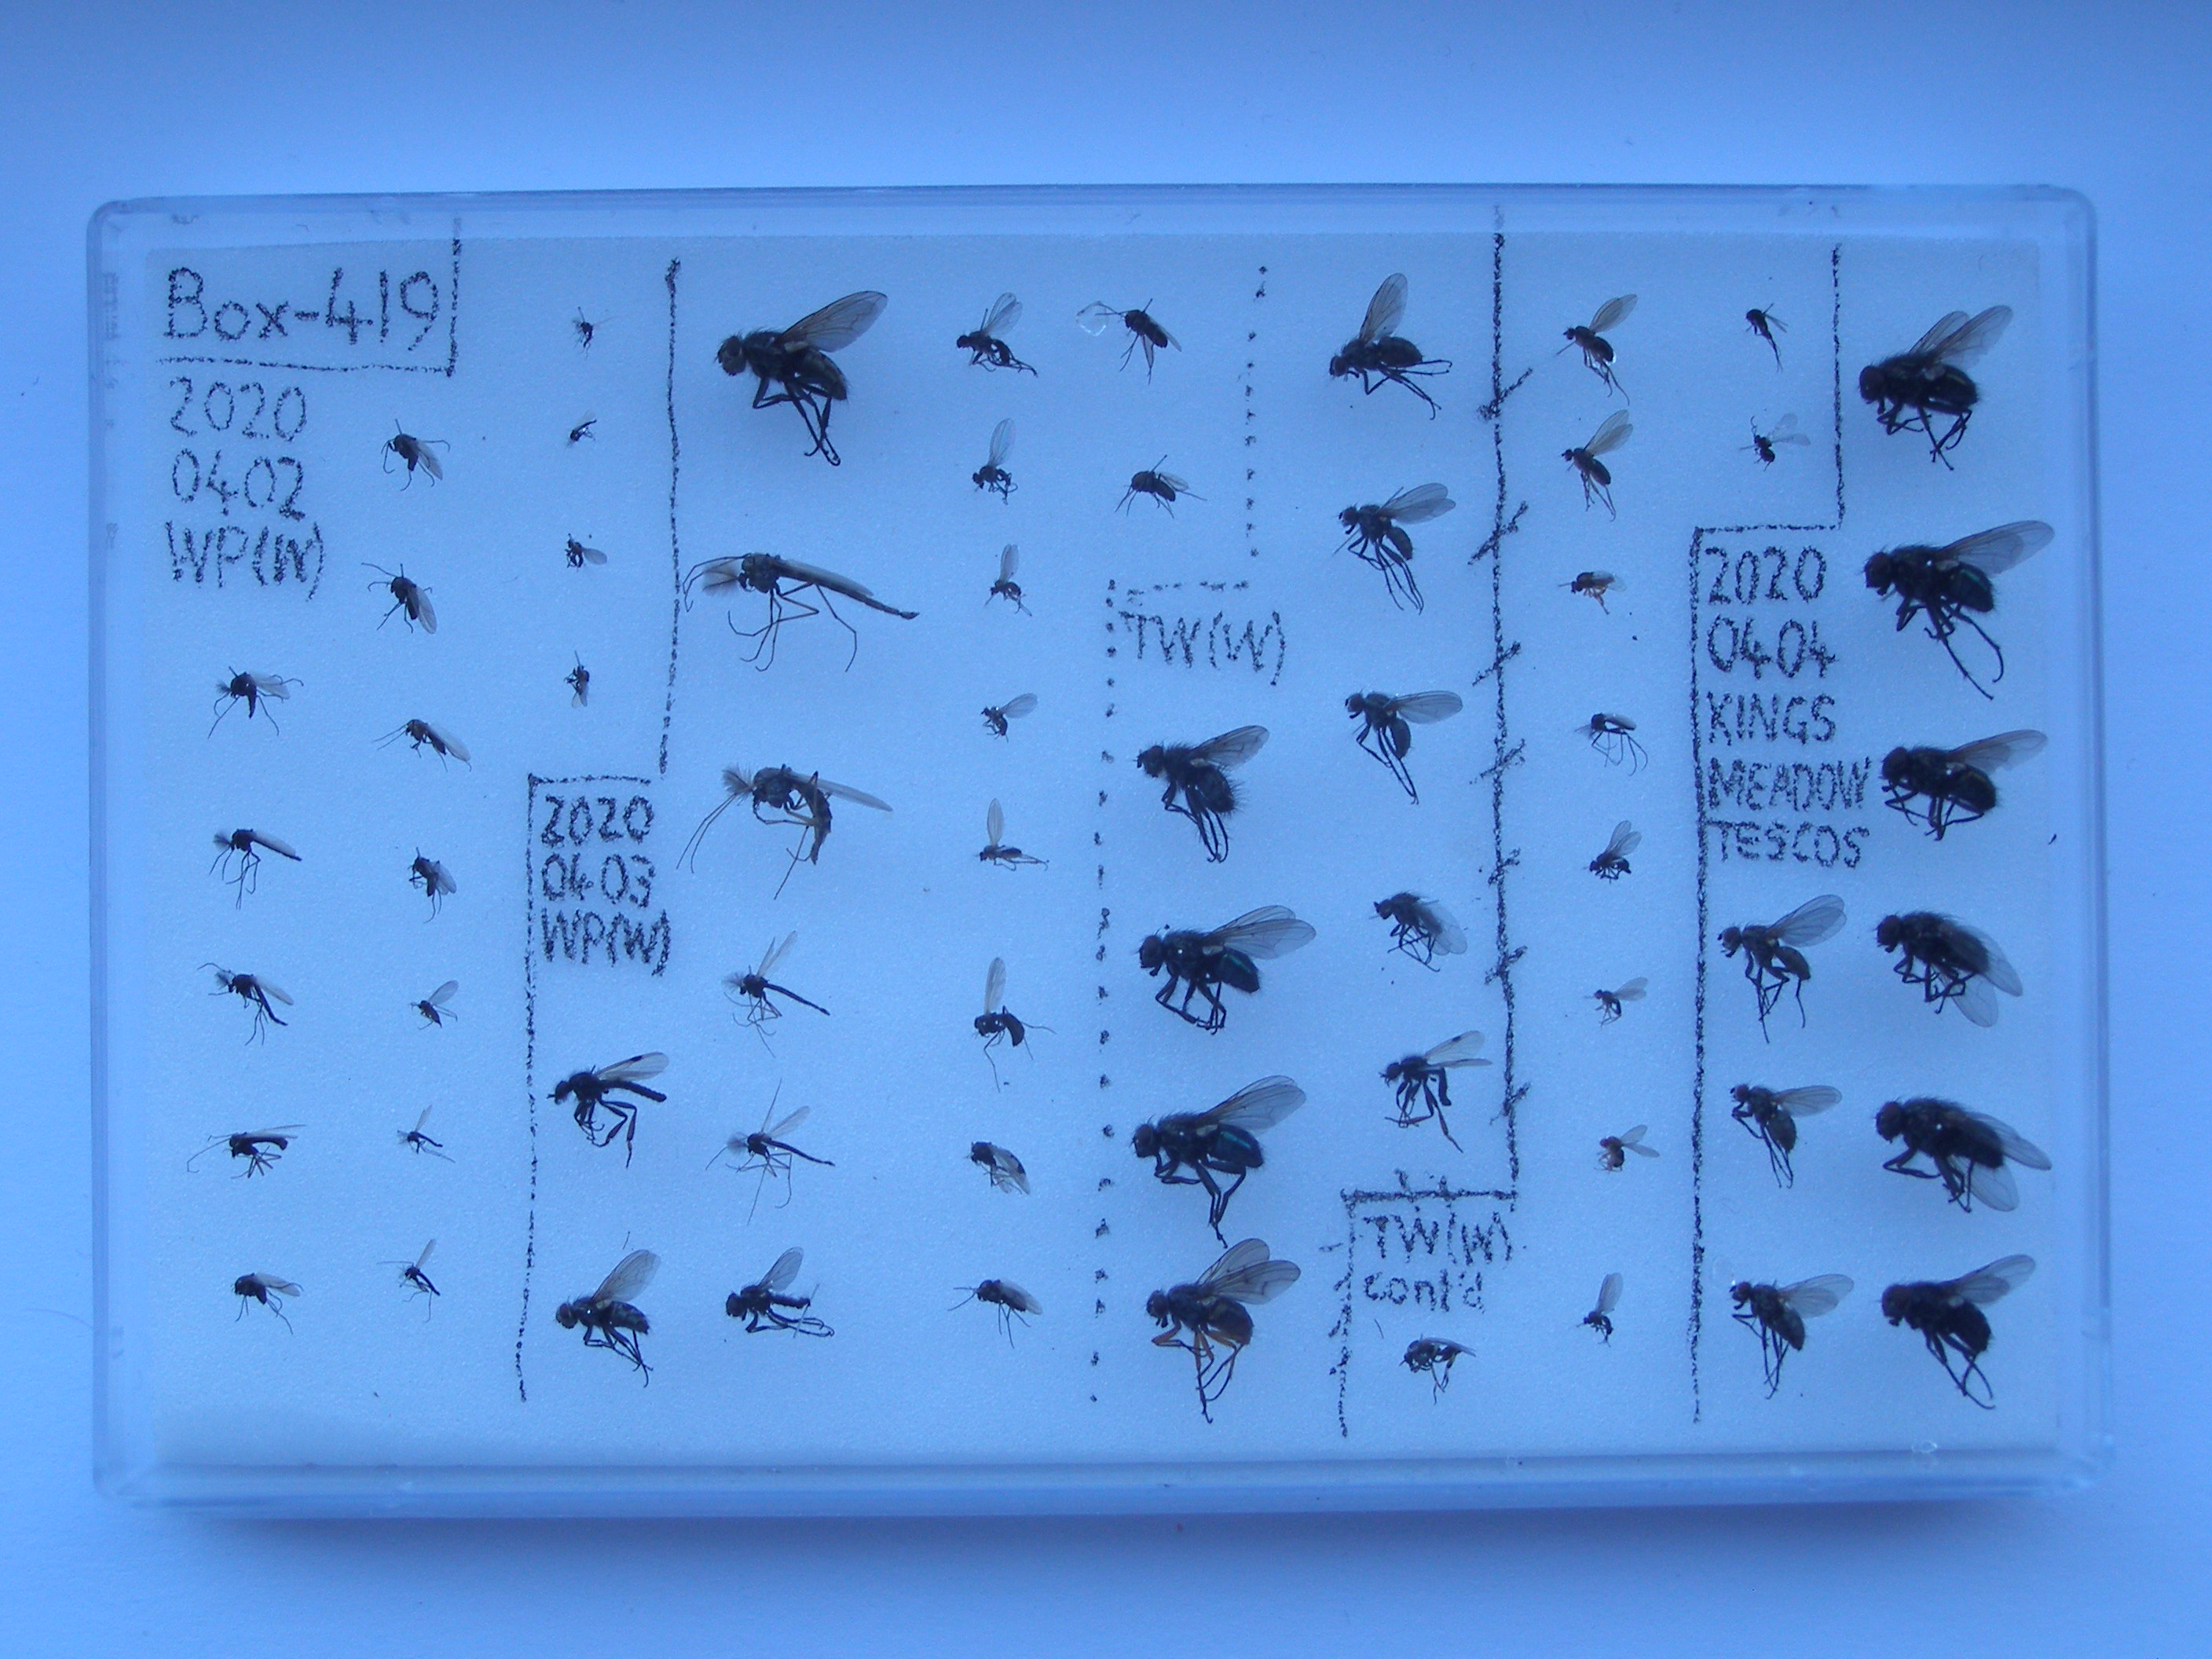 Box-419
2020
0402
WP(W)
2020
0403
WP(W)
TW(W)
TW(W)
cont'd
2020
0404
KINGS
MEADOW
TESCOS